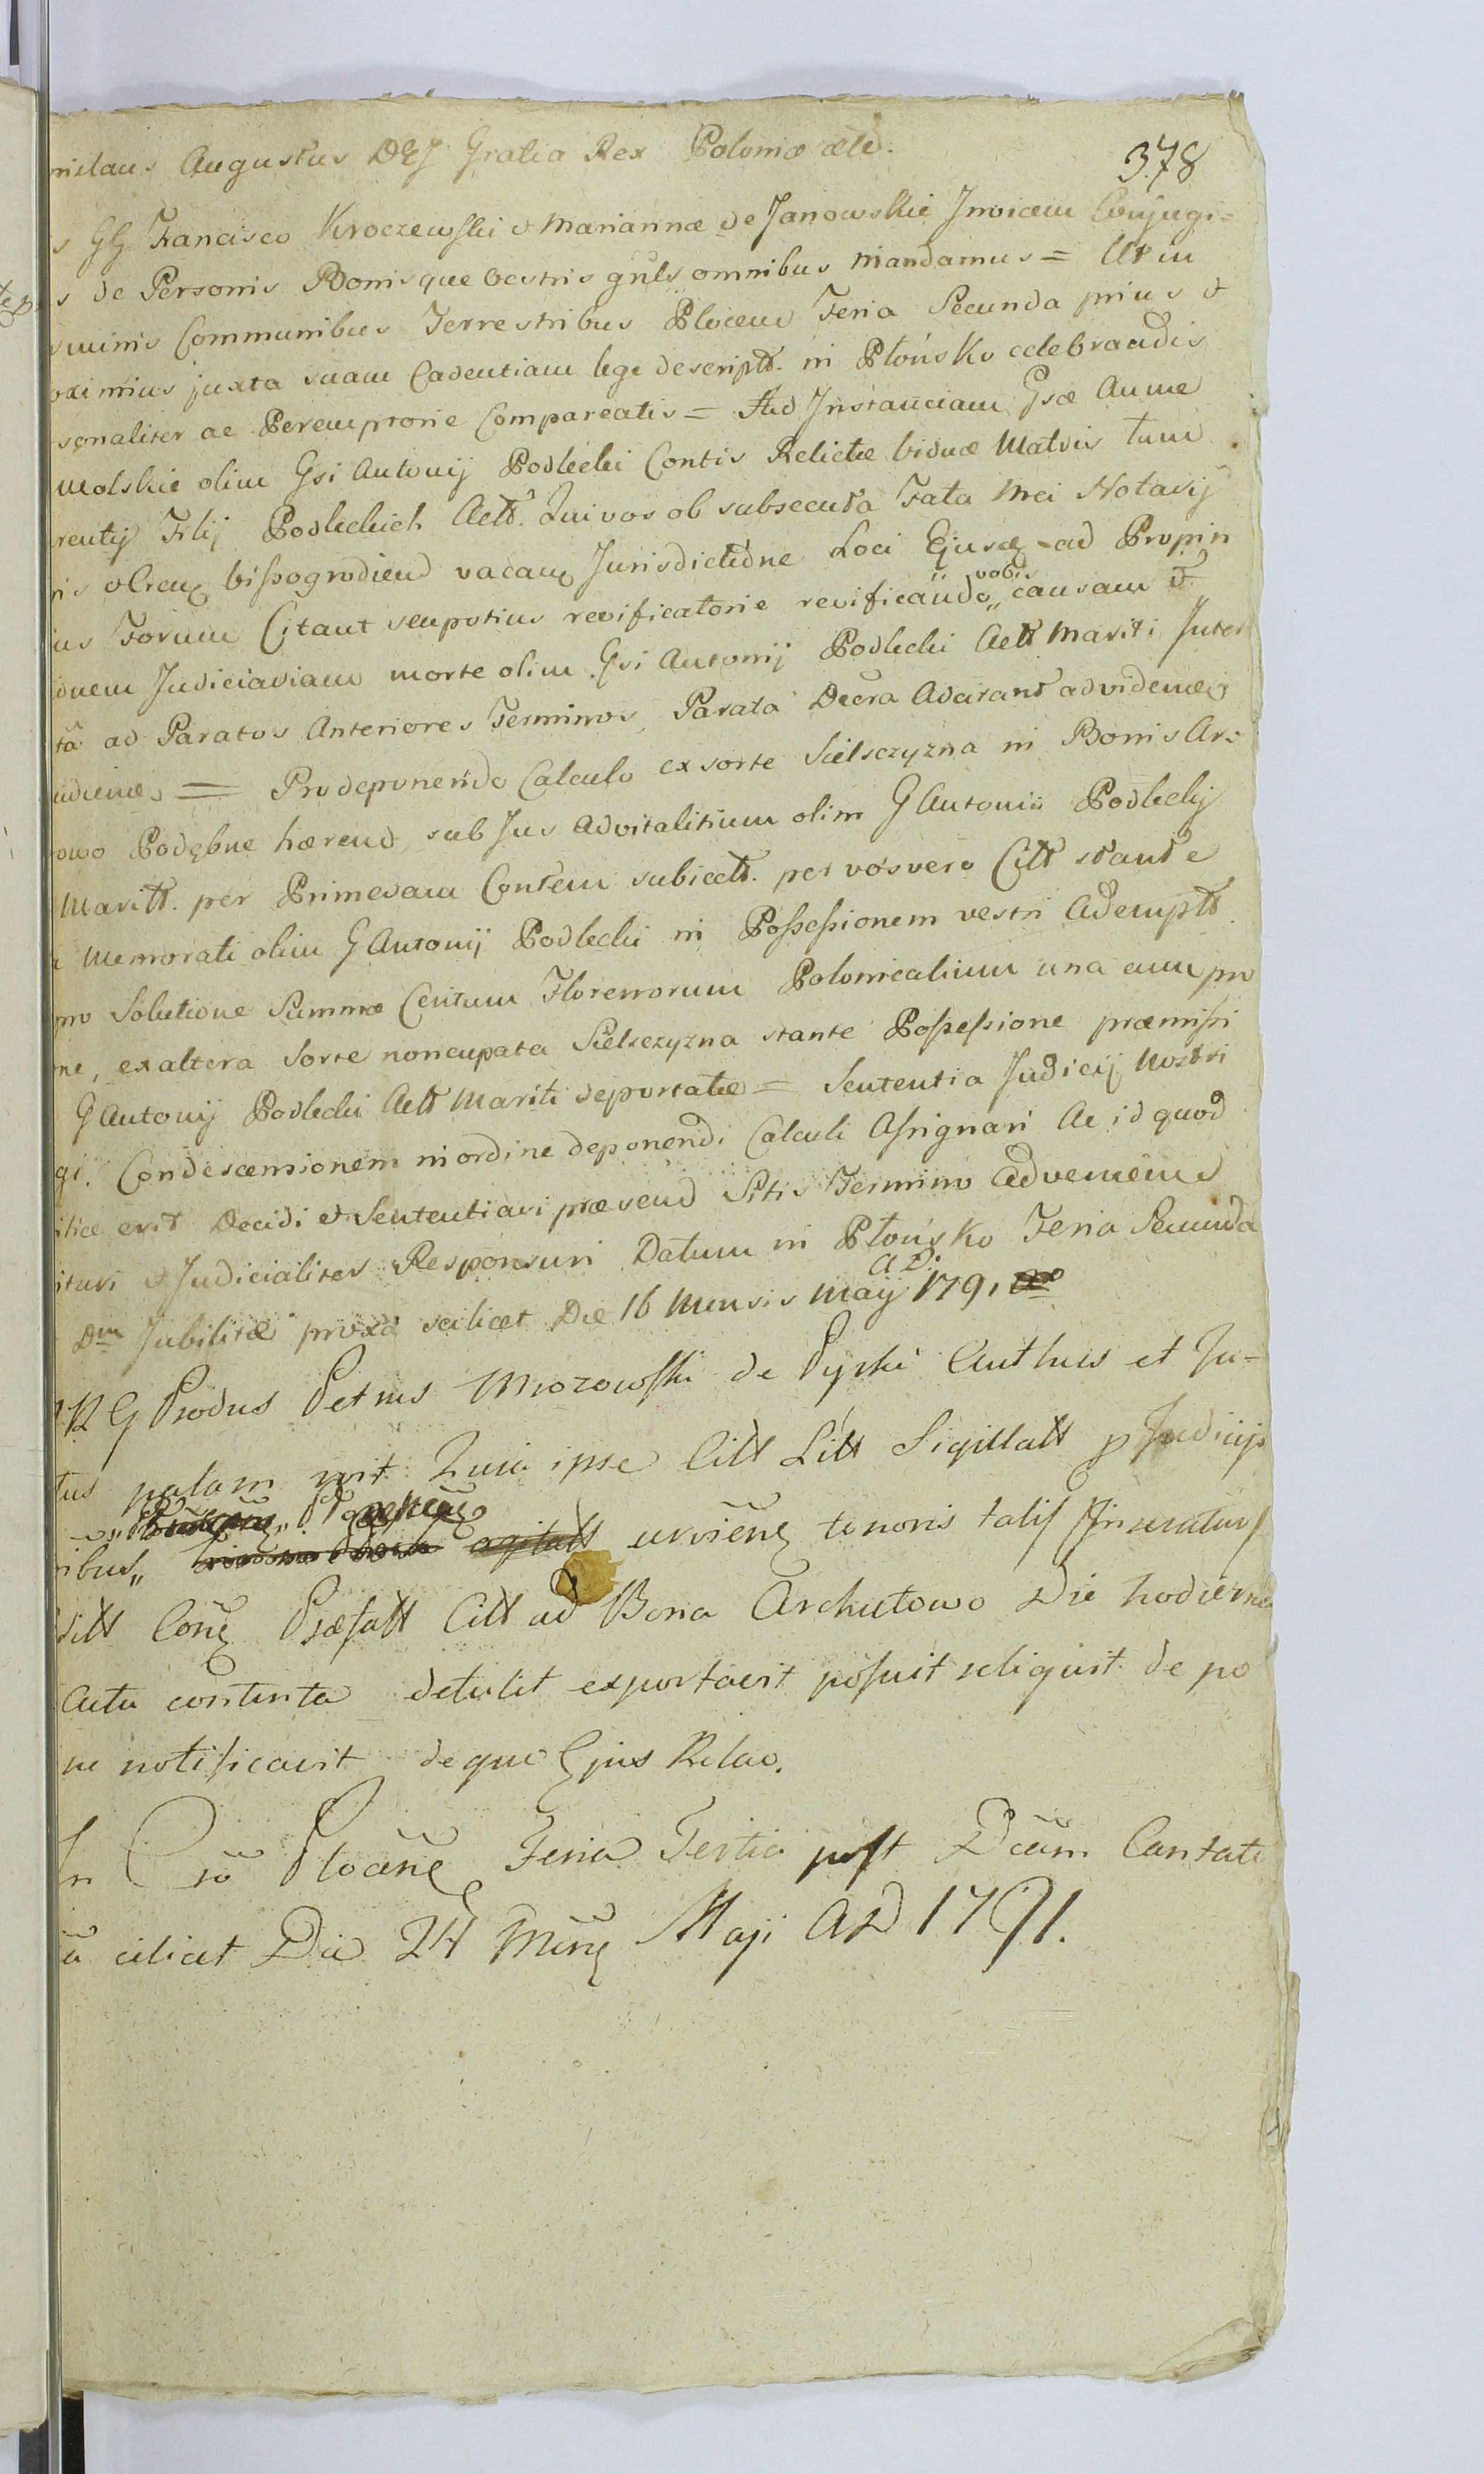 nislaus Augustus DEJ Gratia Rex Poloniæ ætc.
378
s GG Francisco Kroczewski & Mariannæ de Janowskie Invicem Conjugi=
s de Personis Bonisque vestris gñls omnibus mandamus = Ut in
minis Communibus Terrestribus Plocen Feria Secunda prius &
oximius juxta suam Cadentiam lege descriptt. in Płońsko celebrandis
sonaliter ac Peremptorie Compareatis = Ad Instanciam Gsæ Annæ
molskie olim Gsi Antonij Podlecki Contis Relictæ viduæ Matris tum
rentij Filij Podleckich Actt. Qui vos ob subsecuta Fata Mei Notarij
is & Jurisdictione Loci Ejusd ad Propin
us Forum Citant seu potius reificatorie reificando „vobis„ causam &
onem Judiciariam morte olim Gsi Antonij Podlecki Actt Mariti Inter
tã ad Paratos Anteriores Terminos, Parata Decra Adcitant ad videnđ
udiendũ = Pro deponendo Calculo ex sorte Sielsczyzna in Bonis Ar=
owo Podębne hærend sub Jus Advitalitium olim G Antonii Podlecki
Maritt. per Primevam Contem subiectt. per vos vero Citt stante
a memorati olim G Antonij Podlecki in Possessionem vestri Adempt
pro Solutione Summæ Centum Florenorum Polonicalium una cum pro
ne, ex altera Sorte noncupata Sielsczyzna stante Possessione præmissi
G Antonij Podlecki Actt Mariti deportatæ = Sententia Judicij Nostri
gi. Condescensionem in ordine deponendi Calculi Assignari Ac id quod
itiæ erit Decidi & Sententiari præsend Sitis Termino Adveniend
ituri & Judicialiter Responsuri Datum in Płońsko Feria Secunda
Dm Jubilate proxã scilicet Die 16 Mensis Maij A D. 1791
R G Produs Petrus Mrozowski de Pyski Authus et Ju=
tus palam rvit. Quia ipse Citt Litt Sigillatt p Judicijs
ribus„ urviene tenoris talis /Inseratur/
ditt Cone Præfatt Citt ad Bona Archutowo Die hodierna
Actu contenta detulit exportavit posuit reliquit de po
ne notificavit deque Ejus Relao.
In Crõ Plocene Feria Tertia post Dcãm Cantate
ã cilicet Die 24 Mens Maji AD 1791.